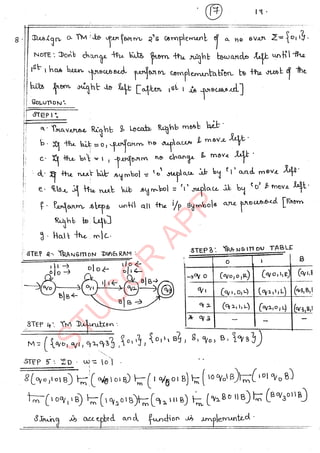 17
18.
8. Design a TM to perform 2's complement of a no over Σ={0,1}.
NOTE: Don't change the bits from the right towards left until the
1st 1 has been processed perform complementation to the rest of the
bits from right to left [after 1st 1 is processed]
SOLUTION:
STEP 1:
a. Traverse Right & Locate Rightmost bit.
b. If the bit = 0, perform no replace & move left.
c. If the bit = 1, perform no change & move left.
d. If the next bit symbol = '0' replace it by '1' and move left.
e. Else if the next bit symbol = '1' replace it by '0' & move left.
f. Perform steps until all the i/p symbols are processed [From
Right to Left]
g. Halt the m/c.
STEP 2: TRANSITION DIAGRAM
STEP 3: TRANSITION TABLE
0 1 B
STEP 4: TM Definition:
M = ({q0, q1, q2, q3}, {0,1}, {0,1,B}, δ, q0, B, {q3})
STEP 5: ID - w = 101
String is accepted and function is implemented.
STUCOR APP